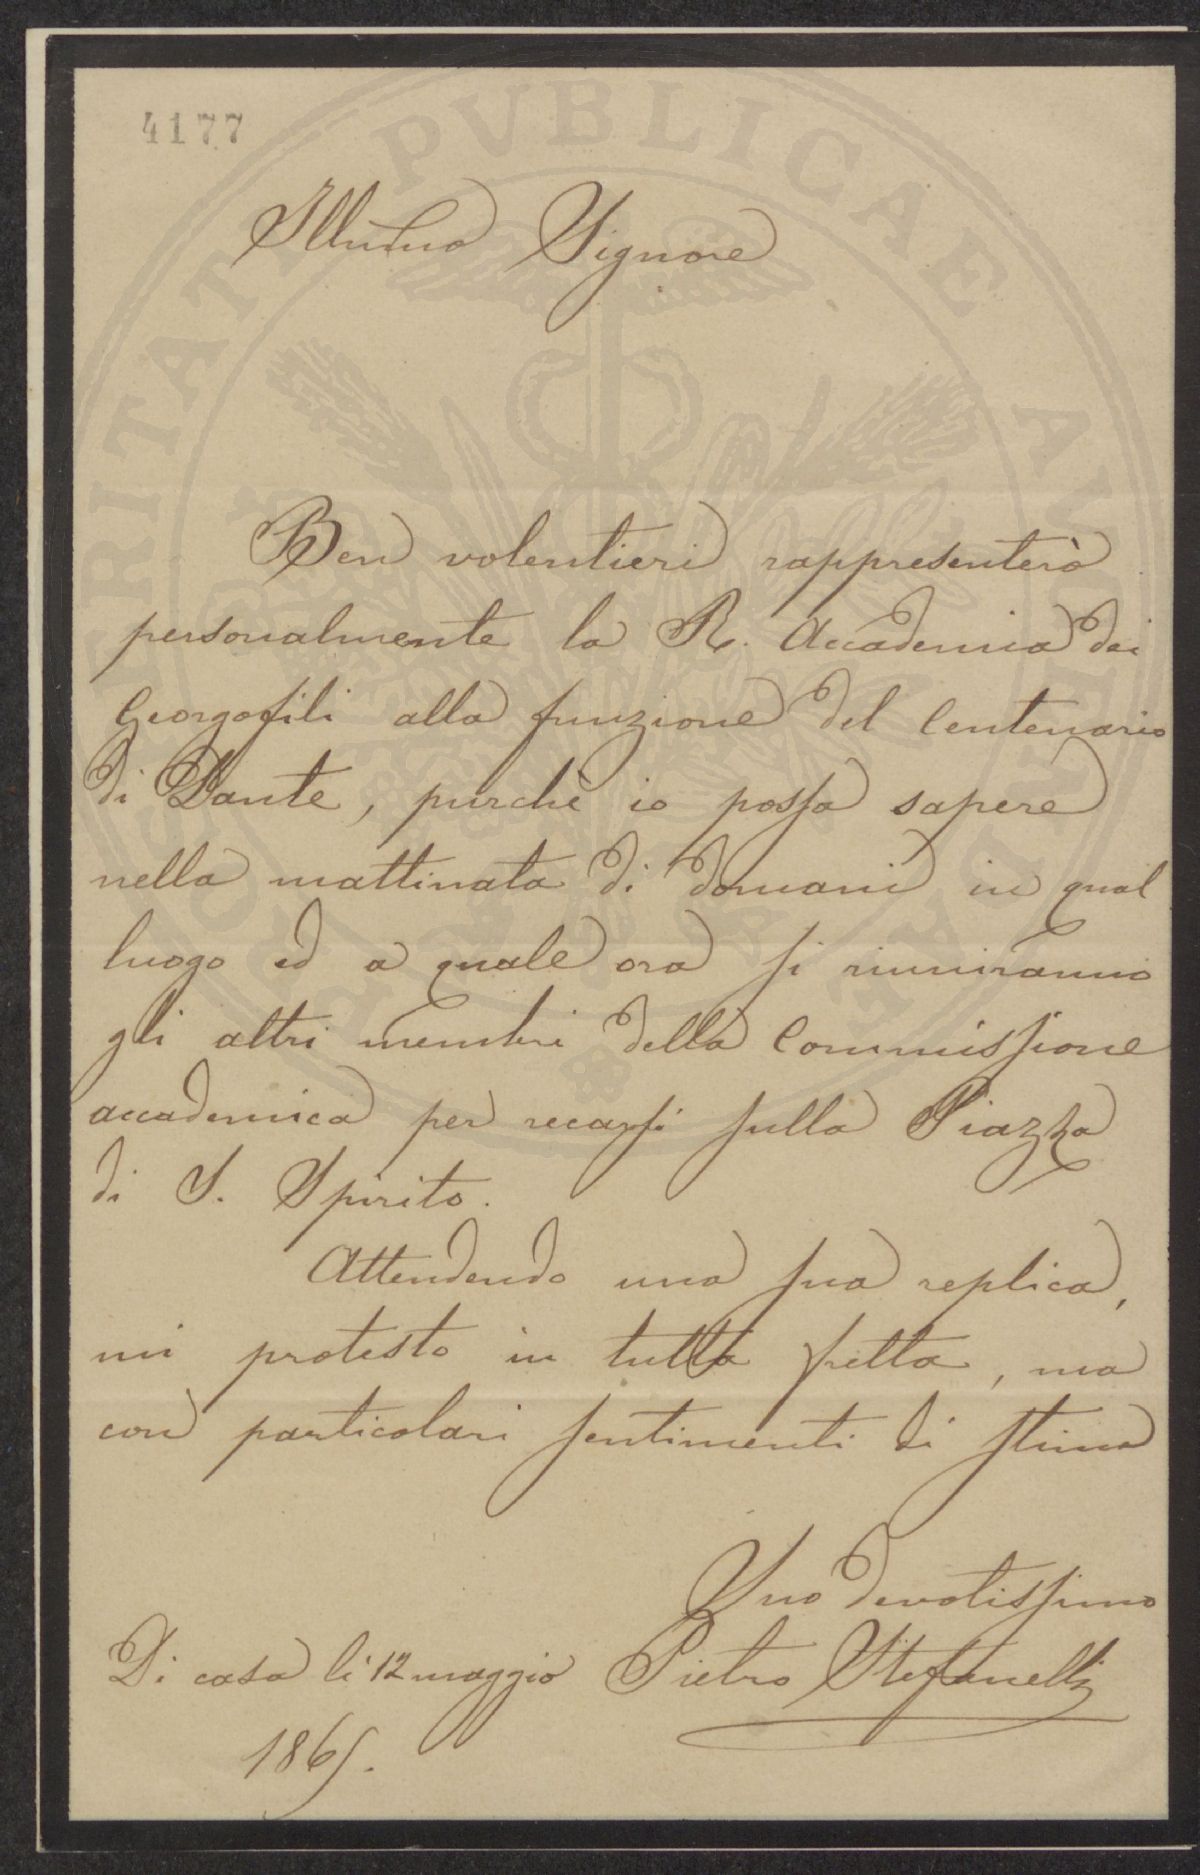 4177
Illmo Signore
Ben volentieri rappresenterò
personalmente la R. Accademia dei
Georgofili alla funzione del Centenario
di Dante, purchè io possa sapere
nella mattinata di domani in qual
luogo ed a quale ora si riuniranno
gli altri membri della Commissione
accademica per recarsi sulla Piazza
di S. Spirito.
Attendendo una sua replica,
mi protesto in tutta fretta, ma
con particolari sentimenti di stima
Suo devotissimo
Di casa li 12 maggio Pietro Stefanelli
1865.